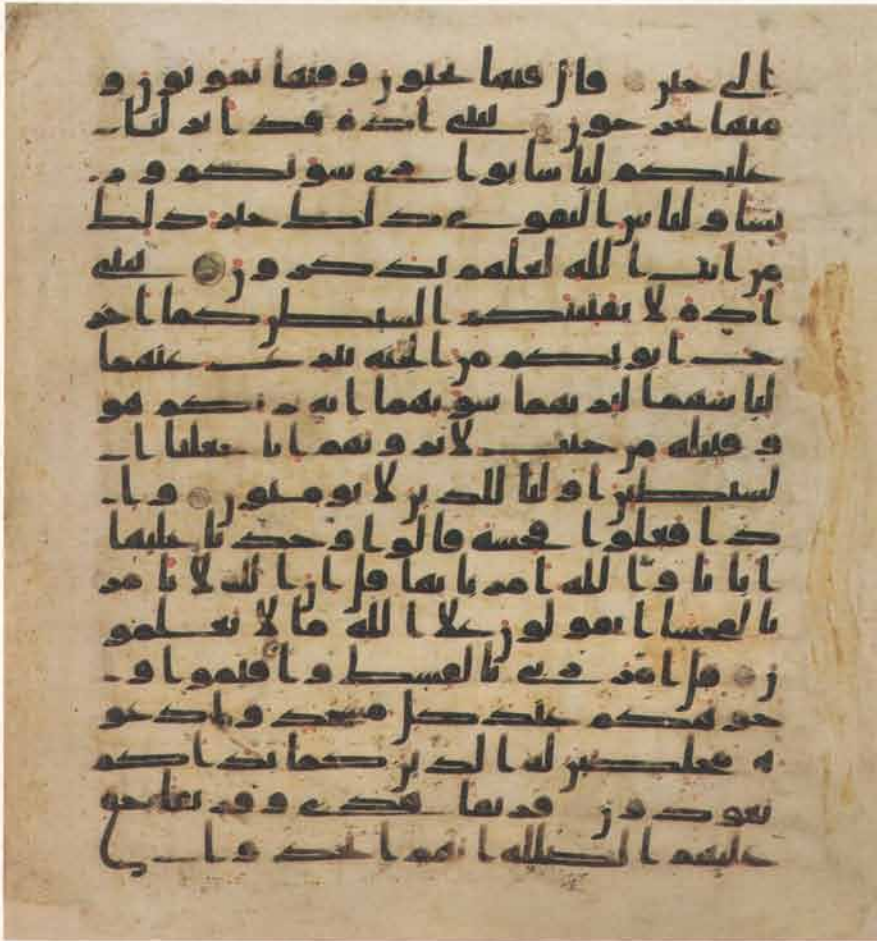 الى حين قال فيها تحيون وفيها تموتون و
منها تخرجون يبني ادم قد انزلنا
عليكم لباسا يوري سوتكم ور
يشا ولباس التقوى ذلك خير ذلك
من ايت الله لعلهم يذكرون يبني
ادم لا يفتننكم الشيطن كما اخر
ج ابويكم من الجنة ينزع عنهما
لباسهما ليريهما سوتهما انه يريكم هو
وقبيله من حيث لا ترونهم انا جعلنا ا
لشيطين اوليا للذين لا يومنون وا
ذا فعلوا فحشة قالوا وجدنا عليها
ابانا والله امرنا بها قل ان الله لا يامر
بالفحشا اتقولون علا الله ما لا تعلمو
ن قل امر ربي بالقسط واقيموا و
جوهكم عند كل مسجد وادعو
ه مخلصين له الدين كما بداكم
تعودون فريقا هدى وفريقا حق
عليهم الضللة انهم اتخذوا